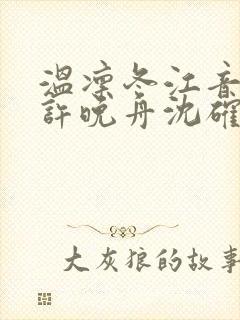 温凛冬江音
許晚舟沈確
大灰狼的故事